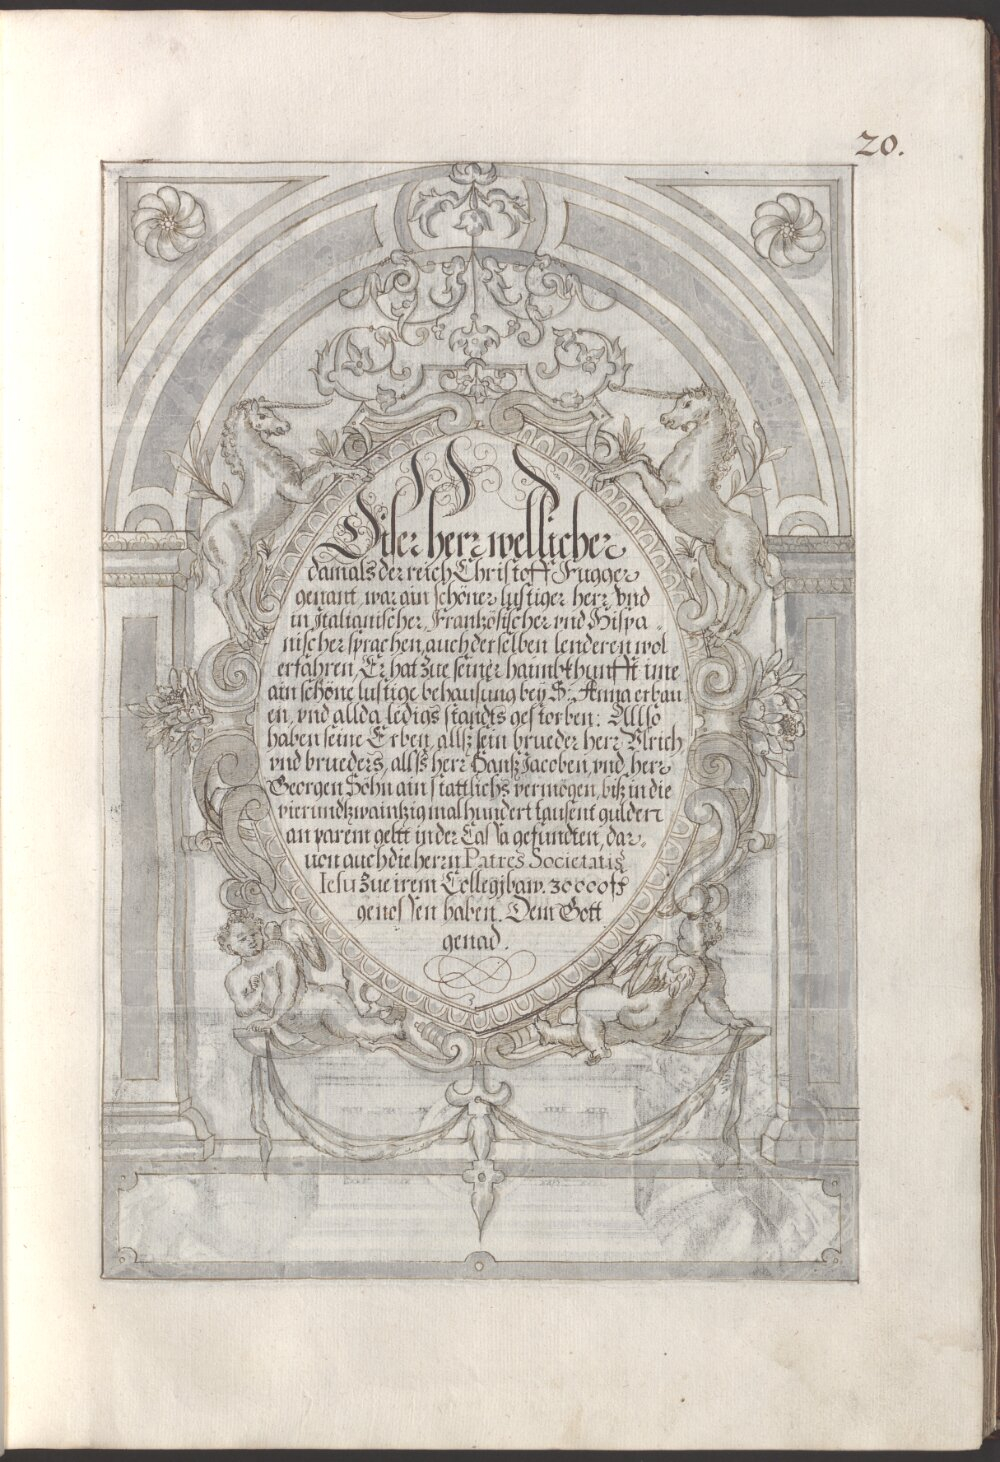 20.
Diser herr wellicher
damals der reich Christoff Fugger
genant, war ain schöner lustiger herr, vnd
in Italianischer, Frantzösischer vnd Hispa-
nischer sprachen, auch derselben lenderen wol
erfahren, Er hat zue seiner haimbkhunfft ime
ain schöne lustige behausung bey S: Anna erbau
en, vnd allda ledigs standts gestorben: Allso
haben seine Erben, allss sein brueder herr Vlrich
vnd brueders, allss herr Hanss Jacoben, vnd herr
Georgen Söhn ain stattlichs vermögen, biss in die
vierundtzwaintzig mal hundert tausent gulden
an parem geltt in der Cassa gefundten, dar-
uon auch die herrn Patres Societatis
Iesu zue irem Collegibaw. 30000 fl
genossen haben. Dem Gott
genad.